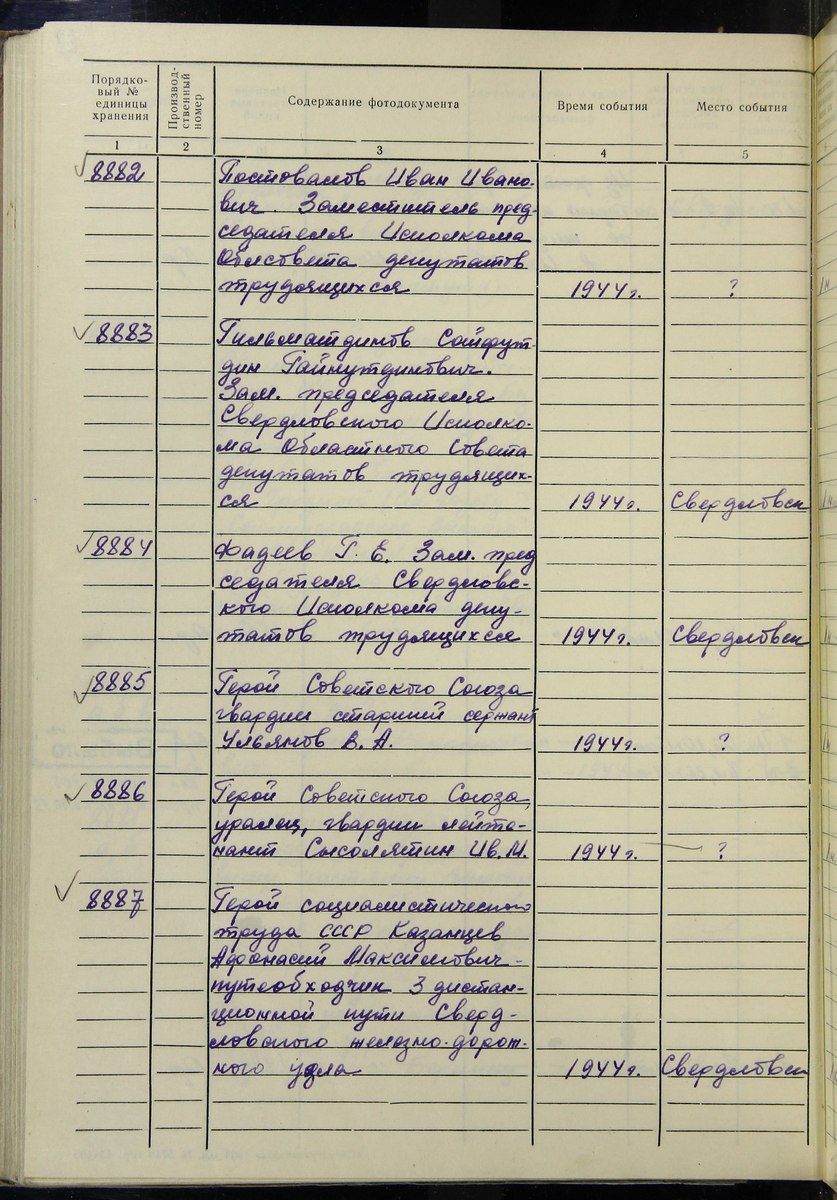 Порядко-
вый №
единицы
хранения
Производ-
ственный
номер
Содержание фотодокумента
Время события
Место события
1 2 3 4 5
8882 Постовалов Иван Ивано-
вич. Заместитель пред-
седателя Исполкома
Облсовета депутатов
трудящихся 1944г. ?
8883 Гильматдинов Сайфут-
дин Гайнутдинович.
Зам. председателя
Свердловского Исполко-
ма Областного Совета
депутатов трудящих-
ся 1944г. Свердловск
8884 Фадеев Г. Е. Зам. пред
седателя Свердловс-
кого Исполкома депу-
татов трудящихся 1944г. Свердловск
8885 Герой Советского Союза
гвардии старший сержант
Ульянов В. А. 1944г. ?
8886 Герой Советского Союза,
уралец, гвардии лейте-
нант Сысолятин Ив. М. 1944г. ?
8887 Герой социалистического
труда СССР Казанцев
Афонасий Максимович -
путеобходчик 3 дистан-
ционной пути Сверд-
ловского железно-дорож-
ного узла 1944г. Свердловск